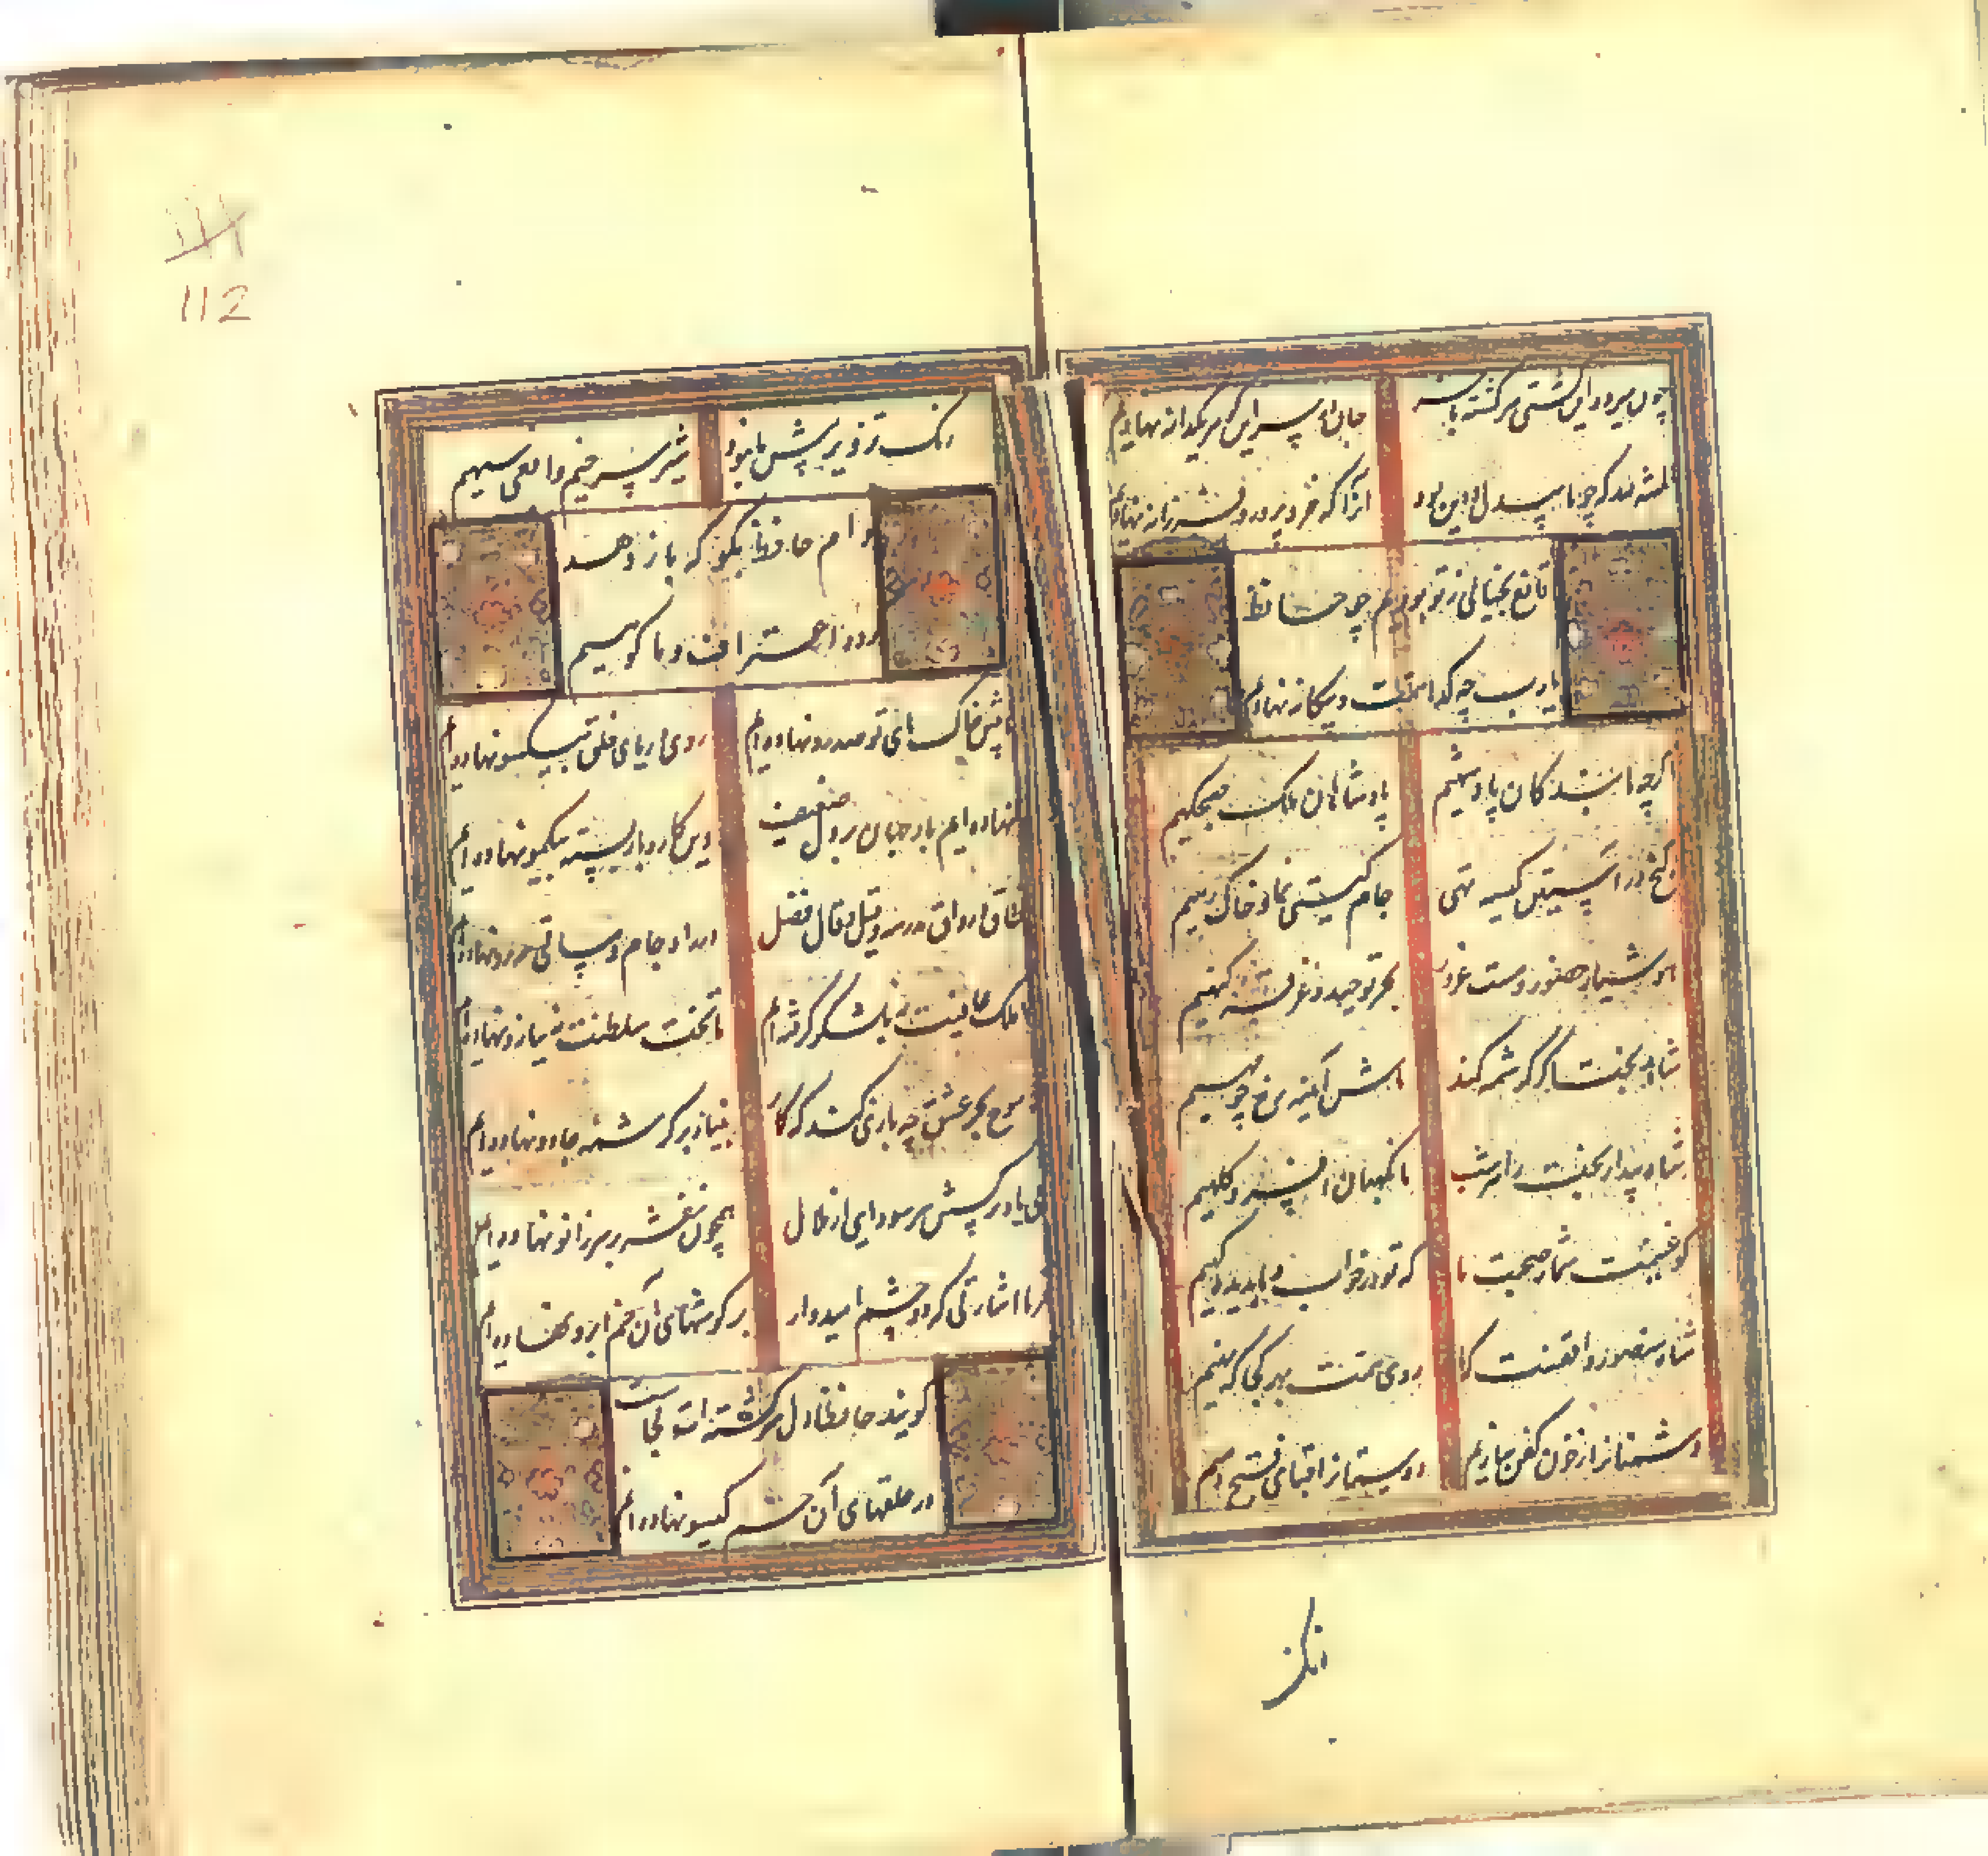 چون میرود این کشتی سرکشته که آخر جان در سر این گوهر یکدانه نهادیم
المنة لله که چو ما بیدل و دین بود آنرا که خرد پرور و فرزانه نهادیم
قانع بخیالی ز تو بودیم چو حافظ
یارب چه گدا همت و بیگانه نهادیم
اگرچه ما بندگان پادشهیم پادشاهان ملک صبحگهیم
گنج در آستین و کیسه تهی جام گیتی نما و خاک رهیم
هوشیار حضور و مست غرور بحر توحید و غرقه گنهیم
شاهد بخت گر کرشمه کند ماش آئینه رخ چو مهیم
شاه بیدار بخت را هر شب ما نگهبان افسر و کلهیم
گو غنیمت شمار صحبت ما که تو در خواب و ما بدیده گهیم
شاه منصور واقفست که ما روی همت بهر کجا که نهیم
دشمنانرا ز خون کفن سازیم دوستانرا قبای فتح دهیم
رنگ
رنگ تزویر پیش ما نبود شیر سرخیم و افعی سیهیم
وام حافظ بگو که باز دهند
کرده اعتراف و ما گوهیم
ما پیش خاک پای تو صد رو نهاده‌ایم روی و ریای خلق بیکسو نهاده‌ایم
ننهاده‌ایم بار جهان بر دل ضعیف وین کار و بار بسته بیکمو نهاده‌ایم
طاق و رواق مدرسه و قیل و قال فضل در راه جام و ساقی مه‌رو نهاده‌ایم
ما ملک عافیت نه بلشکر گرفته‌ایم ما تخت سلطنت نه ببازو نهاده‌ایم
تا سحر عشق چه بازی کند که کار بنیاد بر کرشمه جادو نهاده‌ایم
بی یاد سرکشش سر سودایی از ملال همچون بنفشه بر سر زانو نهاده‌ایم
فرما اشارتی که دو چشم امیدوار بر گوشهای آن خم ابرو نهاده‌ایم
گویند حافظا دل سرگشته‌ات کجاست
در حلقهای آن خم گیسو نهاده‌ایم
112